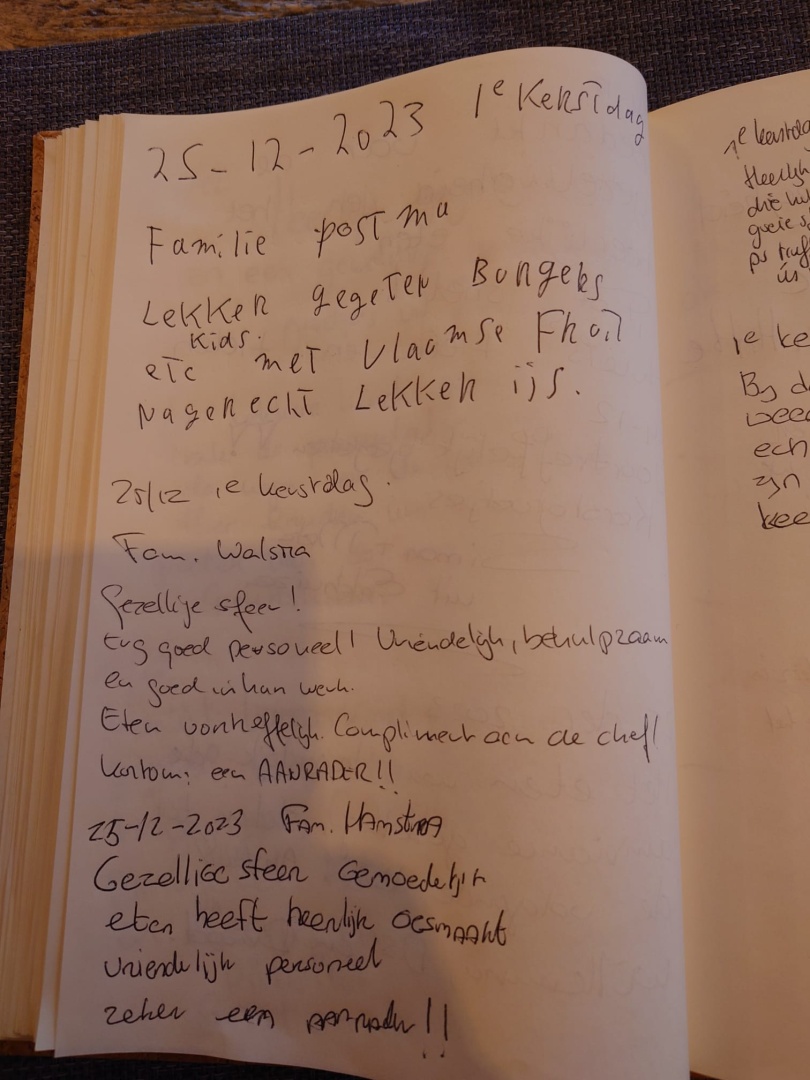 25-12-2023 1e Kerstdag
Familie postma
Lekker gegeten Burgers
kids.
etc met Vlaamse Friet
Nagerecht Lekker ijs.
25/12 1e kerstdag.
Fam. Walstra
Gezellige sfeer!
Erg goed personeel! Vriendelijk, behulpzaam
en goed in hun werk.
Eten voortreffelijk. Compliment aan de chef!
Kortom: een AANRADER!!
25-12-2023 Fam. Hamstra
Gezellige sfeer Gemoedelijk
eten heeft heerlijk gesmaakt
vriendelijk personeel
zeker een aanrader!!
1e kerstdag
Heerlijk
die
goeie
ps
ús
1e ke
By d
ech
zijn
kee